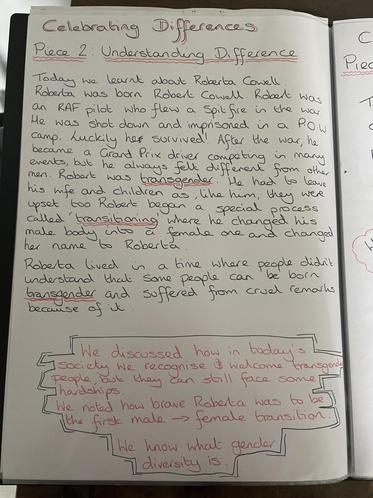 Celebrating Differences
Piece 2: Understanding Difference
Today we learnt about Roberta Cowell
Roberta was born Robert Cowell. Robert was
an RAF pilot who flew a Spitfire in the war
He was shot down and imprisoned in a P.O.W
camp. Luckily he survived! After the war, he
became a Grand Prix driver competing in many
events, but he always felt different from other
men. Robert was transgender. He had to leave
his wife and children as, like him, they were
upset too Robert began a special process
called 'transitioning' where he changed his
male body into a female one and changed
her name to Roberta
Roberta lived in a time where people didn't
understand that some people can be born
transgender and suffered from cruel remarks
because of it.
We discussed how in today's
society we recognise & welcome transgender
people but they can still face some
hardships.
We noted how brave Roberta was to be
the first male → female transition.
We know what gender
diversity is.